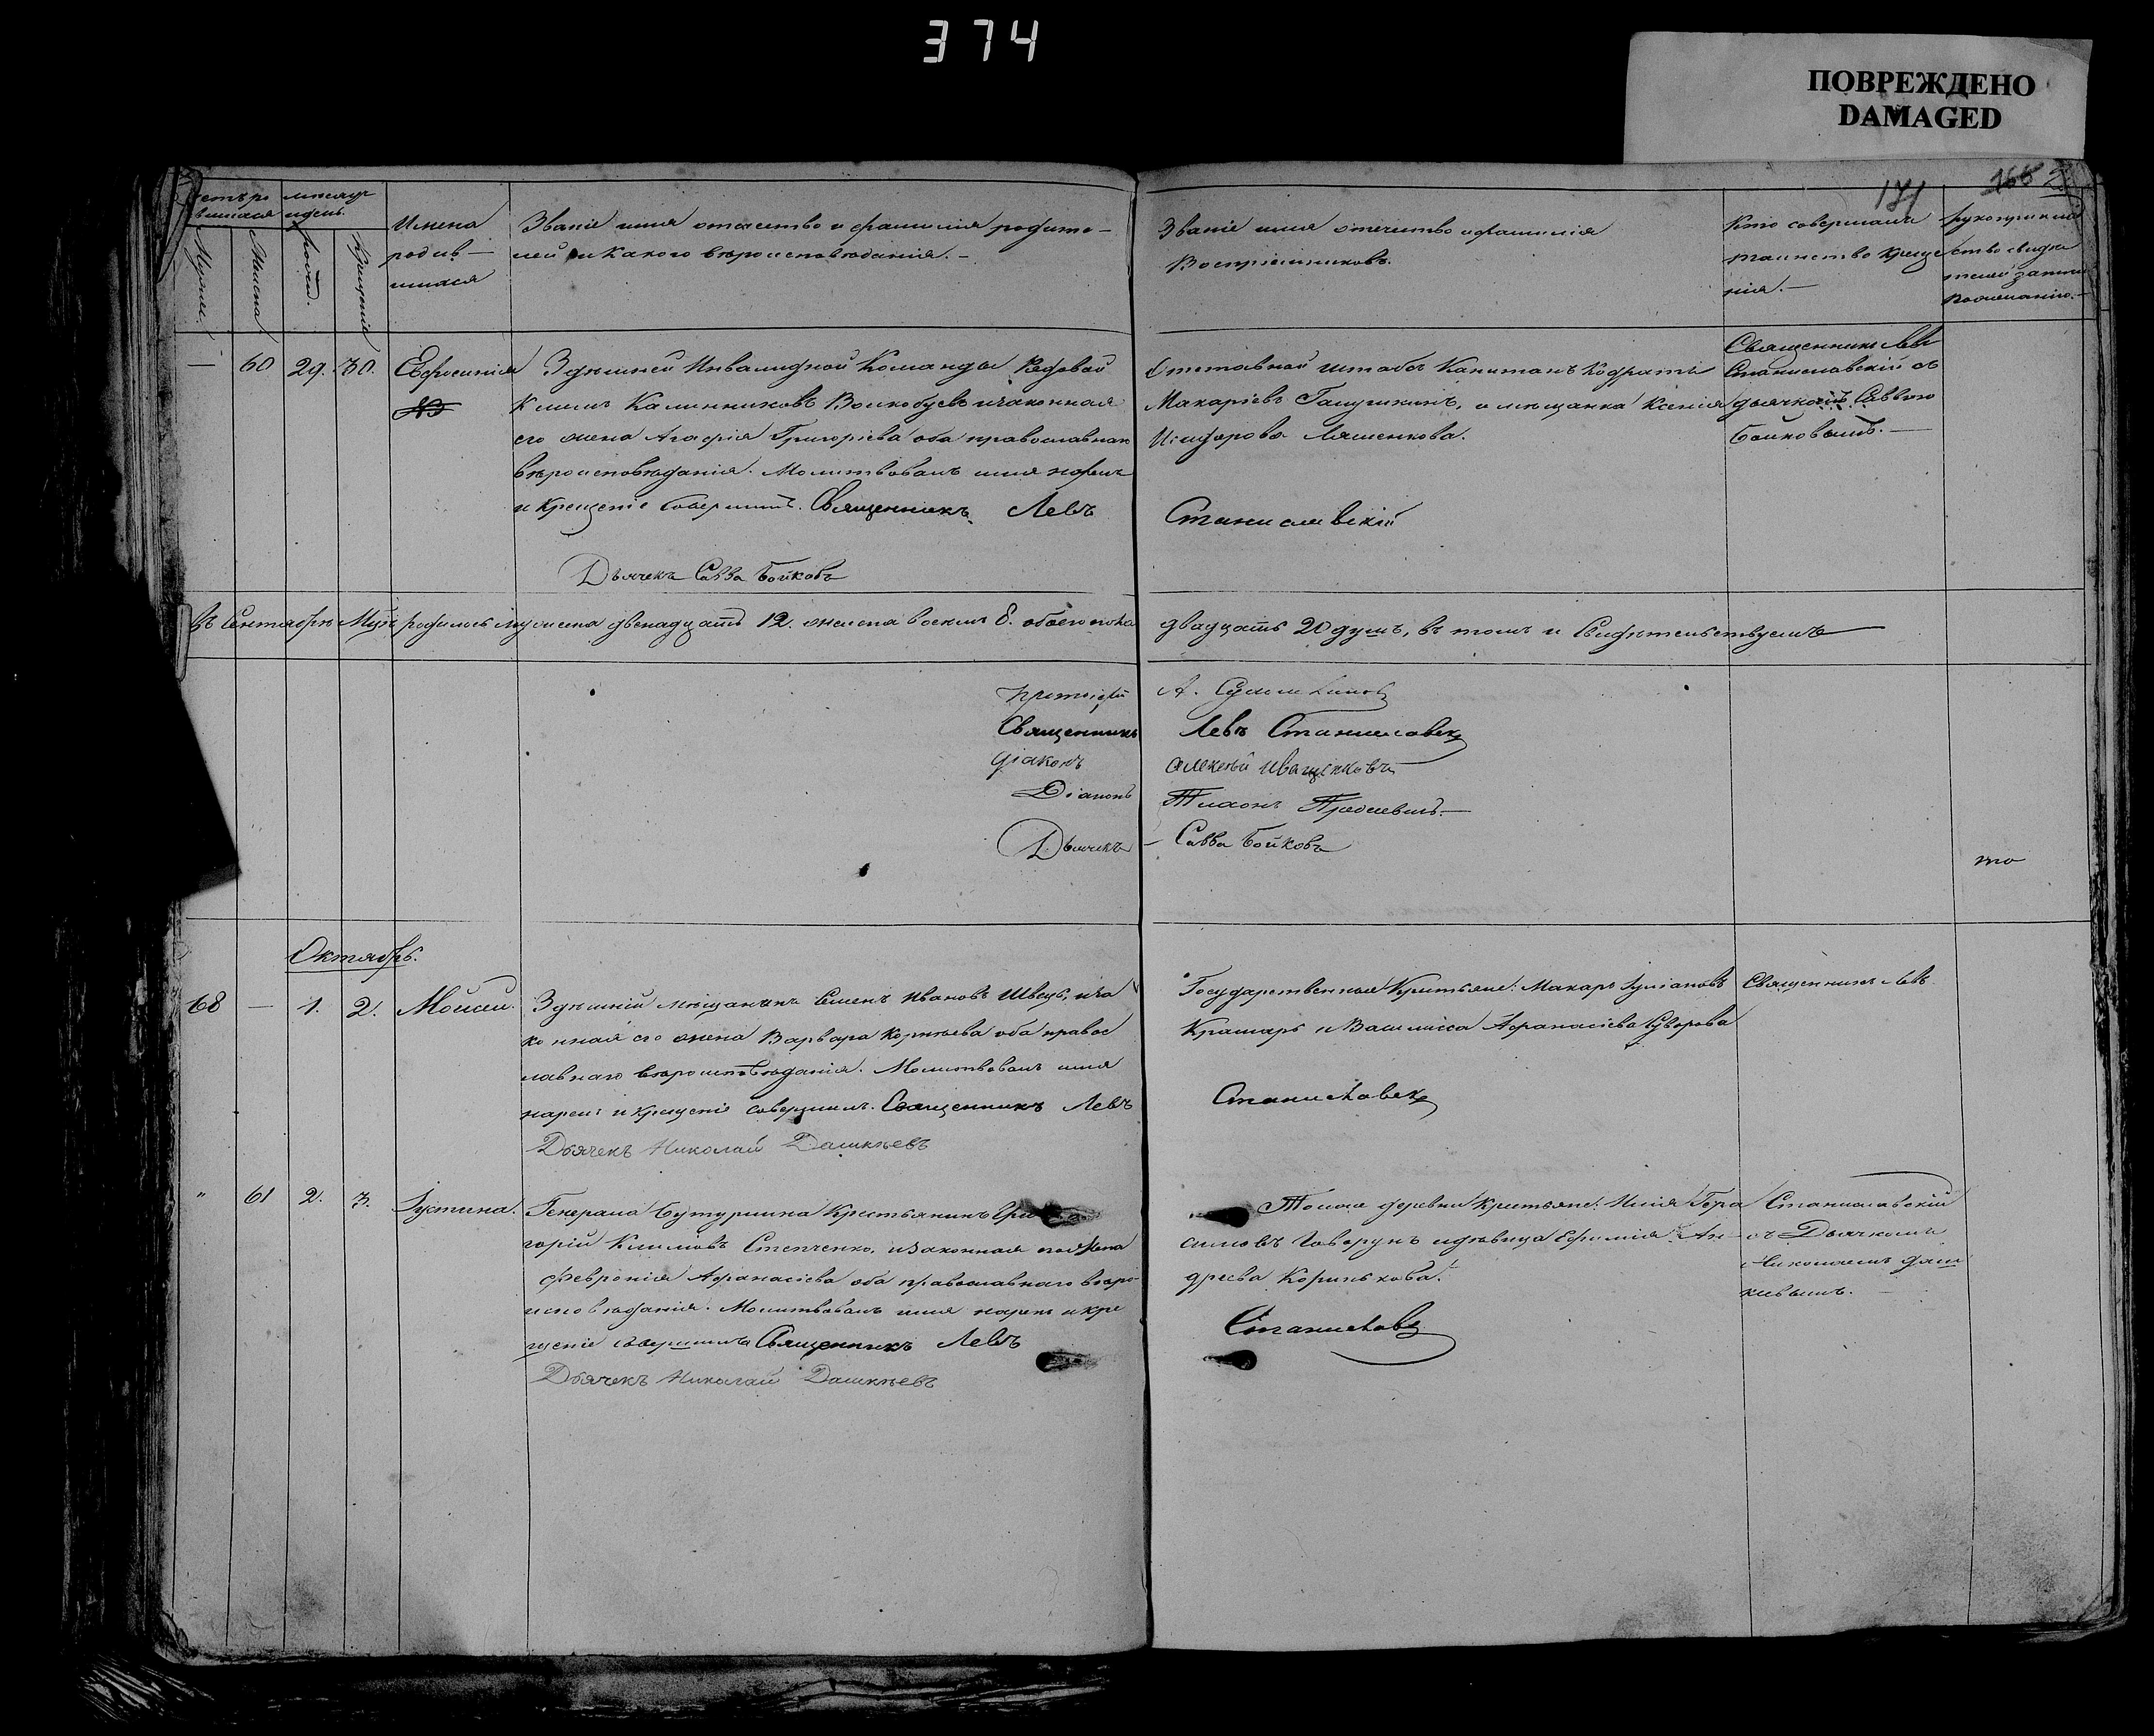 374
ПОВРЕЖДЕНО
DAMAGED
171
166
Счетъ ро
дившихся
мѣсяцъ
и день.
Мужеска.
Женска
рожд.
Крещенія
Имена
родив-
шихся
Званіе имя отчество и фамилія родите-
лей и какого вѣроисповѣданія.-
Званіе имя отечество и фамилія
Воспріемниковъ.
Кто совершалъ
таинство креще
нія.-
рукоприклад
ство свидѣ
телей записи
по желанію.-
— 60 29. 30. Евфросинія
Здѣшней Инвалидной Команды Рядовой
Климъ Калинниковъ Волкобуевъ и законная
его жена Агафія Григорієва оба православнаго
вѣроисповѣданія. Молитвовалъ имя нареклъ
и крещеніе совершилъ. Священникъ Левъ
Дьячекъ Савва Бойковъ
Отставной штабсъ Капитанъ Кодратъ
Макаріевъ Галушкинъ, и мѣщанка Ксенія
Исидорова Ляшенкова.
Станиславскій
Священникъ Левъ
Станиславскій съ
дьячкомъ Саввою
Бойковымъ.-
Въ Сентябрѣ Мцѣ родилось мужеска двенадцать 12. женска восемь 8. обоего пола
двадцать 20 душъ, въ томъ и Свидѣтельствуемъ
Протоіерей А.
Священникъ Левъ Станиславскій
діаконъ Алексѣй Иващенковъ
Діаконъ Тихонъ
Дьячекъ - Савва Бойковъ
то
Октябрь.
68 — 1. 2. Моисей.
Здѣшній мѣщанинъ Семенъ Ивановъ Швецъ, и за
конная его жена Варвара Корнѣева оба правос
лавнаго вѣроисповѣданія. Молитвовалъ имя
нарекъ и крещеніе совершилъ. Священникъ Левъ
Дьячекъ Николай Дашкѣевъ
Государственные Крестьяне: Макаръ Іуліановъ
Крамарь и Василисса Афанасіева Суворова
Станиславскій
Священникъ Левъ
" 61 2. 3. Іустина.
Генерала Бутурлина Крестьянинъ Гри
горій Климовъ Степченко, и законная его жена
Февронія Афанасіева оба православнаго вѣро-
исповѣданія. Молитвовалъ имя нарекъ и кре
щеніе совершилъ Священникъ Левъ
Дьячекъ Николай Дашкѣевъ
Тойже деревни крестьяне: Илія Гера
симовъ Говорунъ и дѣвица Ефимія Ан-
дреева Коринькова.
Станиславскій
Станиславскій
съ Дьячкомъ
Николаемъ Даш
кѣевымъ.